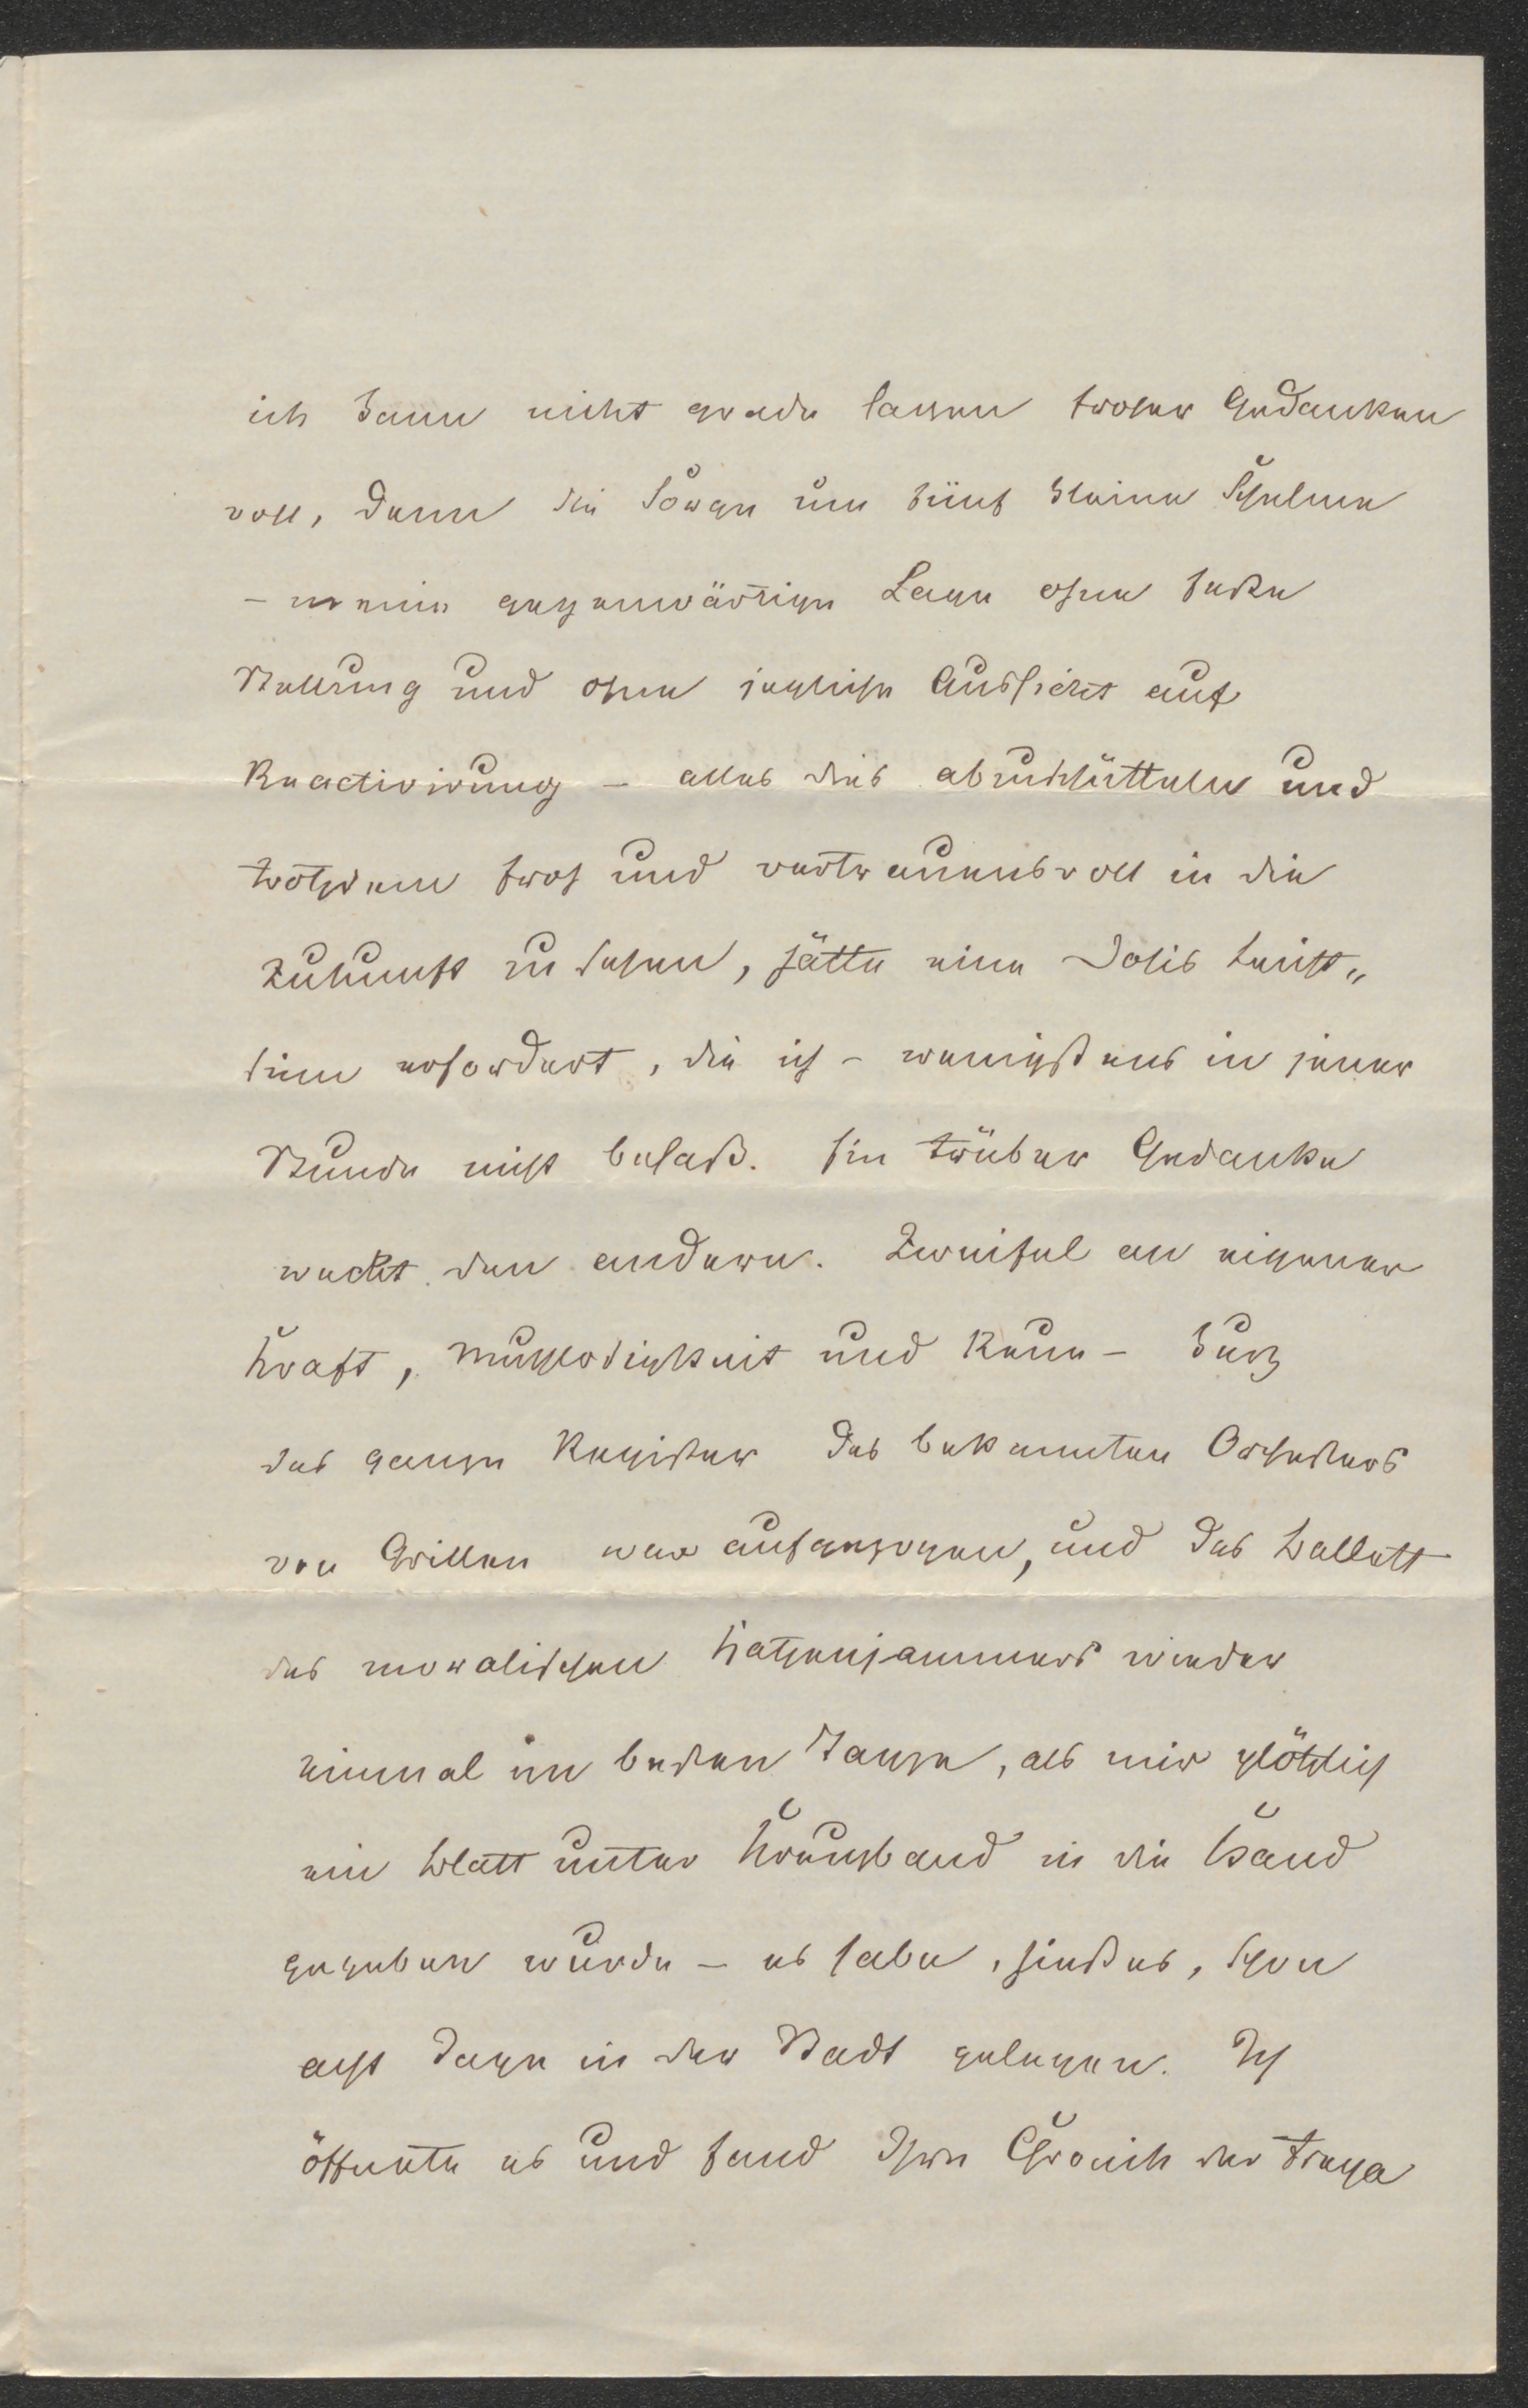 ich kann nicht grade sagen froher Gedanken
voll, denn die Sorge um fünf kleine Schelme
– meine gegenwärtige Lage ohne feste
Stellung und ohne jegliche Aussicht auf
Reactivirung – alles dies abzuschütteln und
trotzdem froh und vertrauensvoll in die
Zukunft zu sehen, hätte eine Dosis Leicht„
sinn erfordert, die ich – wenigstens in jener
Stunde nicht besaß. Ein trüber Gedanke
weckt den andern. Zweifel an eigener
Kraft, Muthlosigkeit und Reue – kurz
das ganze Register des bekannten Orchesters
von Grillen war aufgezogen, und das Ballett
des moralischen Katzenjammers wieder
einmal im besten Tanze, als mir plötzlich
ein Blatt unter Kreuzband in die Hand
gegeben wurde – es habe, hieß es, schon
acht Tage in der Stadt gelegen. Ich
öffnete es und fand Ihre Chronik der Freya